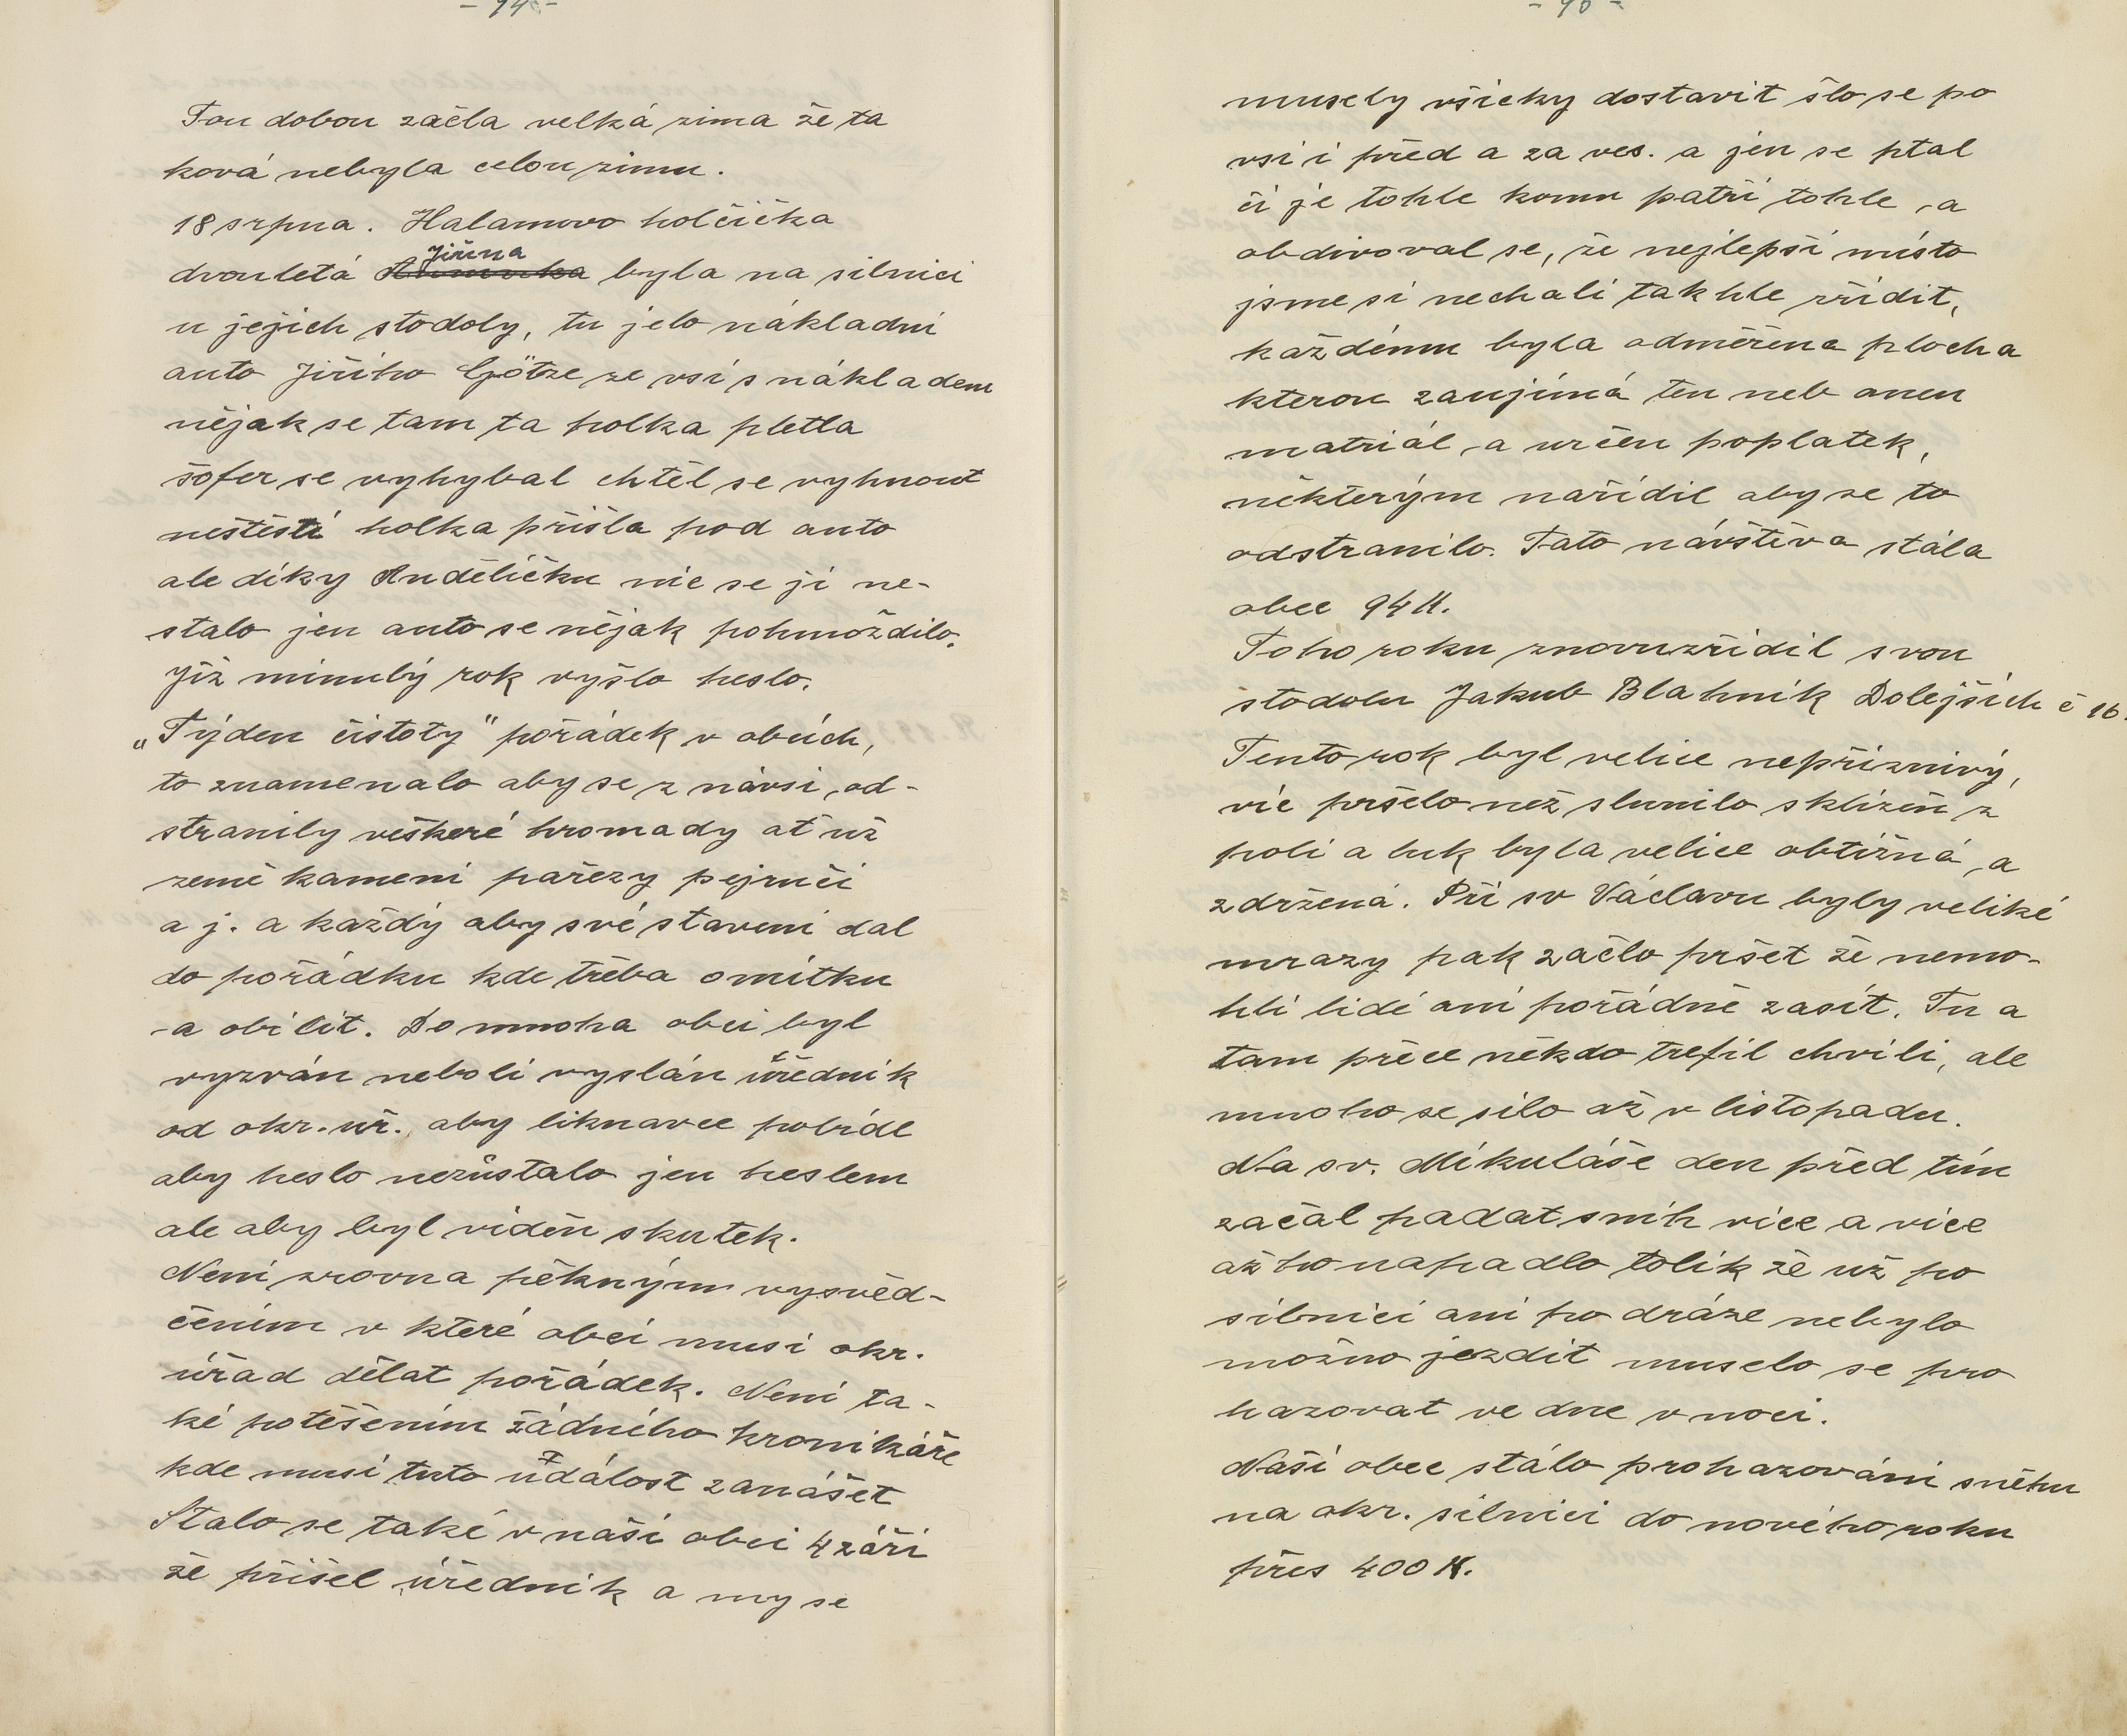 Tou dobou začla velká zima že ta
ková nebyla celou zimu.
18 srpna. Halamovo holčička
Jiřina
dvouletá byla na silnici
u jejich stodoly, tu jelo nákladní
auto Jiřího Götze ze vsi s nákladem
nějak se tam ta holka pletla
šofer se vyhybal chtěl se vyhnout
neštěstí holka přišla pod auto
ale díky Andělíčku nic se jí ne-
stalo jen auto se nějak pohmoždilo.
Již minulý rok vyšlo heslo.
„Týden čistoty" pořádek v obcích,
to znamenalo aby se z návsi od-
stranily veškeré hromady ať už
země kamení pařezy pejručí
a j. a každý aby své stavení dal
do pořádku kde třeba omítku
a obílit. Do mnoha obcí byl
vyzván neboli vyslán úředník
od okr. úř. aby liknavce pobídl
aby heslo nezůstalo jen heslem
ale aby byl viděn skutek.
Není zrovna pěkným vysvěd-
čením v které obci musí okr.
úřad dělat pořádek. Není ta-
ké potěšením žádného kronikáře
kde musí tuto událost zanášet
Stalo se také v naší obci 4 září
že přišel úředník a my se
musely všicky dostavit šlo se po
vsi i před a za ves. a jen se ptal
čí je tohle komu patří tohle a
obdivoval se, že nejlepší místo
jsme si nechali takhle zřídit,
každému byla odměřena plocha
kterou zaujímá ten neb onen
matriál a určen poplatek,
některým nařídil aby se to
odstranilo. Tato návštěva stála
obec 94 K.
Toho roku znovuzřídil svou
stodolu Jakub Blahník Dolejších č 16.
Tento rok byl velice nepříznivý,
víc pršelo než slunilo sklizeň z
polí a luk byla velice obtížná a
zdržená. Při sv Václavu byly veliké
mrazy pak začlo pršet že nemo-
hli lidé ani pořádně zasít. Tu a
tam přece někdo trefil chvíli, ale
mnoho se silo až v listopadu.
Na sv. Mikuláše den před tím
začal padat sníh více a více
až ho napadlo tolik že už po
silnici ani po dráze nebylo
možno jezdit muselo se pro
hazovat ve dne v noci.
Naší obec stálo prohazování sněhu
na okr. silnici do nového roku
přes 400 K.